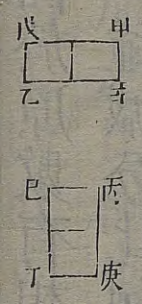 戊 甲
乙 辛
巳 丙
丁 庚